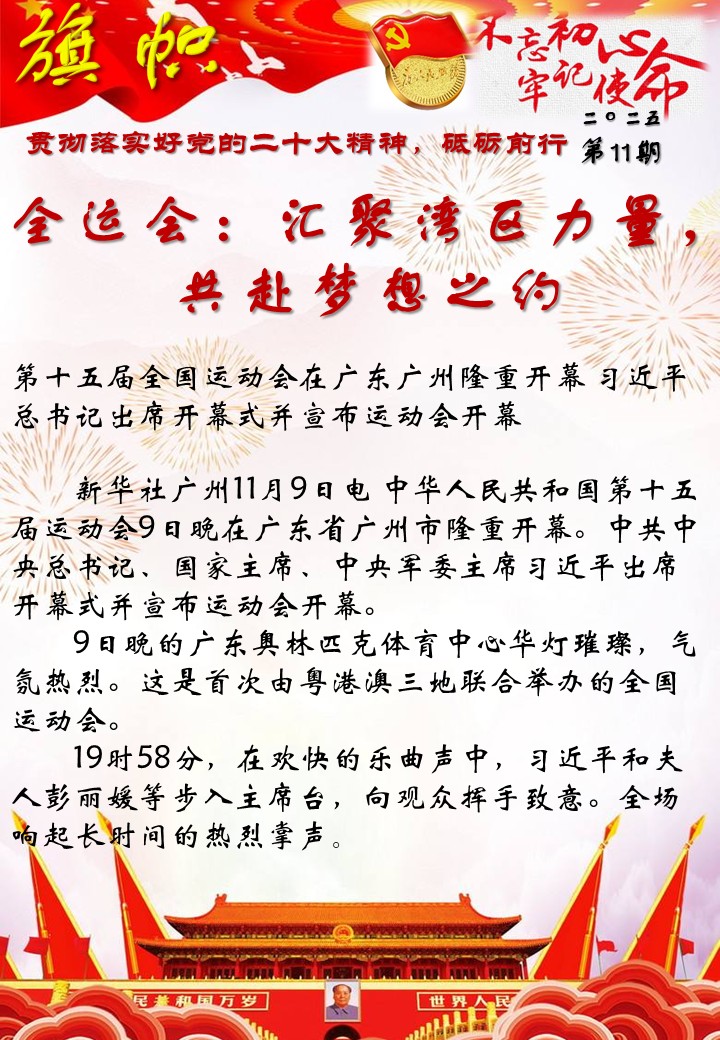 旗帜
不忘初心
牢记使命
二〇二五
第11期
贯彻落实好党的二十大精神，砥砺前行
全运会：汇聚湾区力量，
共赴梦想之约
第十五届全国运动会在广东广州隆重开幕 习近平
总书记出席开幕式并宣布运动会开幕
新华社广州11月9日电 中华人民共和国第十五
届运动会9日晚在广东省广州市隆重开幕。中共中
央总书记、国家主席、中央军委主席习近平出席
开幕式并宣布运动会开幕。
9日晚的广东奥林匹克体育中心华灯璀璨，气
氛热烈。这是首次由粤港澳三地联合举办的全国
运动会。
19时58分，在欢快的乐曲声中，习近平和夫
人彭丽媛等步入主席台，向观众挥手致意。全场
响起长时间的热烈掌声。
民共和国万岁
世界人民